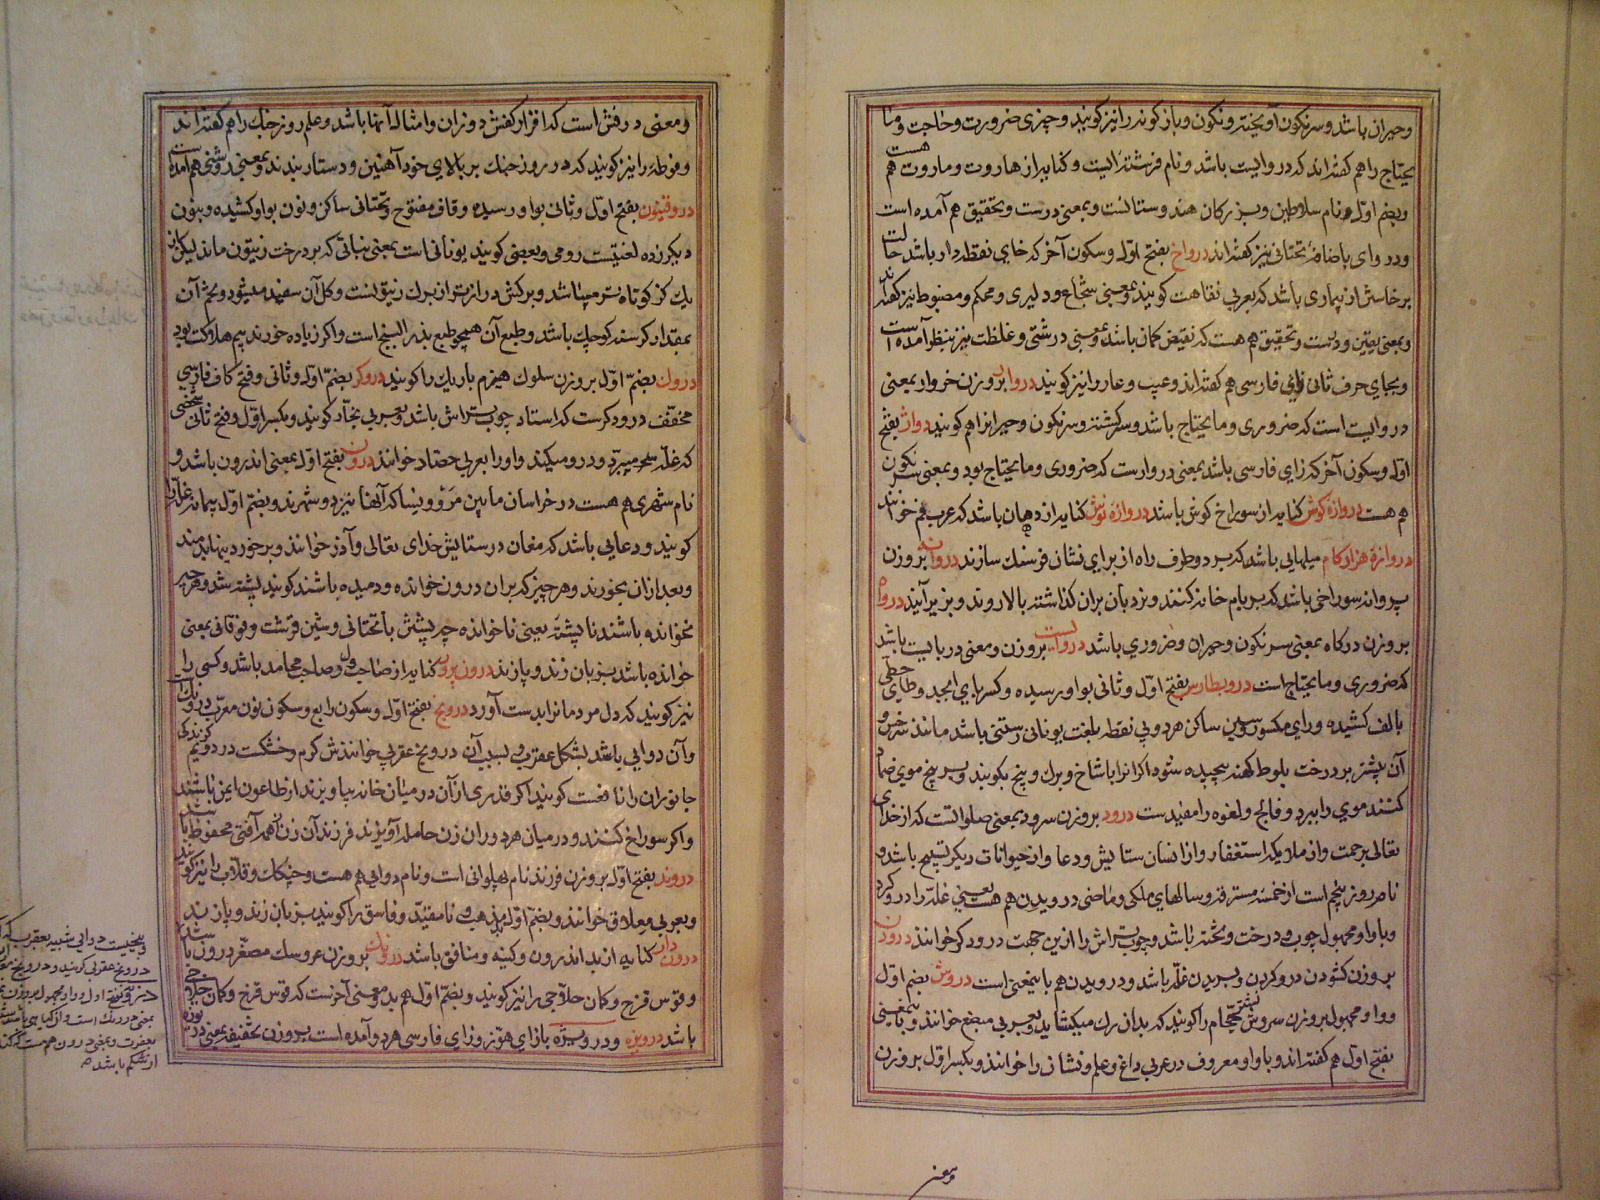 و حیران باشد و سرنکون آویخته و نکون و باز کونه را نیز کویند و چیزی ضرورت و حاجت و ما
یحتاج را هم کفته‌اند که دروایست باشد و نام فرشته ایست و کنایه از هاروت و ماروت هم هست
و بضم اول نام سلاطین و بزرکان هندوستانست و بمعنی درست و تحقیق هم آمده است
و دروای باضافهٔ تحتانی نیز کفته‌اند درواخ بفتح اول و سکون آخر که خای نقطه دار باشد حالت
برخاستن از بیماری باشد که بعربی نقاهت کویند و بمعنی شجاع و دلیری و محکم و مضبوط نیز کفته‌اند
و بمعنی یقین و درست و تحقیق هم هست که نقیض کمان باشد و بمعنی درشتی و غلظت نیز بنظر آمده است
و بجای حرف ثانی زای فارسی هم کفته‌اند و عیب و عار را نیز کویند دروار بر وزن خروار بمعنی
دروایست است که ضروری و مایحتاج باشد و سرکشته و سرنکون و حیران را هم کویند درواژ بفتح
اول و سکون آخر که زای فارسی باشد بمعنی دروارست که ضروری و مایحتاج بود و بمعنی سرنکون
هم هست دروازه کوش کنایه از سوراخ کوش باشد دروازه نوش کنایه از دهان باشد که عرب فم خوانند
دروازهٔ هزار کام میلهایی باشد که بر دو طرف راه از برای نشان فرسنک سازند دروانه بر وزن
پروانه سوراخی باشد که بر بام خانه کنند و نردبان بران کذاشته بالا روند و بزیر آیند درواه
بر وزن درکاه بمعنی سرنکون و حیران و ضروری باشد دروایست بر وزن و معنی دربایست باشد
که ضروری و مایحتاج است دروبطارس بفتح اول و ثانی بواو رسیده و کسر بای ابجد و طای حطی
بالف کشیده و رای مکسور بسین ساکن هر دو بی نقطه بلغت یونانی رستنی باشد مانند سرخس و
آن بیشتر بر درخت بلوط کهنه پیچیده شود اکر آنرا با شاخ و برک و بیخ بکوبند و بر بیخ موی ضماد
کنند موی را ببرد و فالج و لقوه را مفیدست درود بر وزن سرود بمعنی صلوا تست که از خدای
تعالی رحمت و از ملایکه استغفار و از انسان ستایش و دعا و از حیوانات دیکر تسبیح باشد و
نام روز پنجم است از خمسه مسترقه سالهای ملکی و ماضی درویدن هم هست یعنی غله را درو کرد
و با واو مجهول چوب و درخت و تخته باشد و چوب تراش را از این جهت درودکر خوانند درودن
بر وزن کشودن درو کردن و بریدن غله باشد و درویدن هم باینمعنی است دروش بضم اول
و واو مجهول بر وزن سروش نشتر حجام را کویند که بدان رک میکشاید و بعربی مبضع خوانند و باینمعنی
بفتح اول هم کفته‌اند و با واو معروف در عربی داغ و علم و نشان را خوانند و بکسر اول بر وزن
و بمعنی
و معنی درفش است که افزار کفش دوزان و امثال آنها باشد و علم روز جنک را هم کفته‌اند
و فوطه را نیز کویند که در روز جنک بر بالای خود آهنین و دستار بندند و بمعنی روشنی هم آمده است
دروقینون بفتح اول و ثانی بواو رسیده و قاف مفتوح و تحتانی ساکن و نون بواو کشیده و بنون
دیکر زده لغتیست رومی و بعضی کویند یونانی است بمعنی نباتی که بدرخت زیتون ماند لیکن از
یک کز کوتاه‌تر میباشد و برکش درازتر از برک زیتونست و کل آن سفید میشود و تخم آن
بمقدار کرسنه کوچک باشد و طبع آن همچو طبع بذر البنج است و اکر زیاده خورند بیم هلاکت بود
دروک بضم اول بر وزن سلوک هیزم باریک را کویند دروکر بضم اول و ثانی و فتح کاف فارسی
مخفف درودکرست که استاد چوب تراش باشد و بعربی نجار کویند و بکسر اول و فتح ثانی شخصی
که غله میبرد و درو میکند و او را بعربی حصاد خوانند درون بفتح اول بمعنی اندرون باشد و
نام شهری هم هست در خراسان مابین مرو و نسا که آنهٔا نیز دو شهرند و بضم اول پیمانه غله را
کویند و دعایی باشد که مغان در ستایش خدای تعالی و آذر خوانند و بر خوردنیها بدمند
و بعد از آن بخورند و هر چیز که بران درون خوانده و دمیده باشند کویند یشته شد و هر چه
نخوانده باشند نا یشته یعنی نا خوانده چه یشتن با تحتانی و شین قرشت و فوقانی بمعنی
خوانده باشد بزبان زند و پازند درون پرور کنایه از صاحب دل و صاحب محامد باشد و کسی را
نیز کویند که دل مردمانرا بدست آورد درونج بفتح اول و سکون رابع و سکون نون معرب درونک است
و آن دوایی باشد بشکل عقرب و بسبب آن درونج عقربی خوانندش کرم و خشکست در دویم کزندکی
جانوران را نافعست کویند اکر قدری از آن در میان خانه بیاویزند از طاعون ایمن باشند
و اکر سوراخ کنند و در میان هر دو ران زن حامله آویزند فرزند آن زن از همه آفتی محفوظ باشد
دروند بفتح اول بر وزن فرزند نام پهلوانی است و نام دوایی هم هست و چنکک و قلاب را نیز کویند
و بعربی معلاق خوانند و بضم اول بد مذهب و نا مقید و فاسق را کویند بزبان زند و پازند
درون دار کنایه از بد اندرون و کینه و منافق باشد درونک بر وزن عروسک مصغر درون باشد
و قوس قزح و کمان حلاجی را نیز کویند و بضم اول هم بد و معنی آخرست که قوس قزح و کمان حلاجی
باشد درویزه و درویژه بازای هوز و زای فارسی هر دو آمده است بر وزن
و بیخیست دوایی شبیه بعقرب که آنرا
درونج عقربی کویند و درونج معرب
از شکم باشد